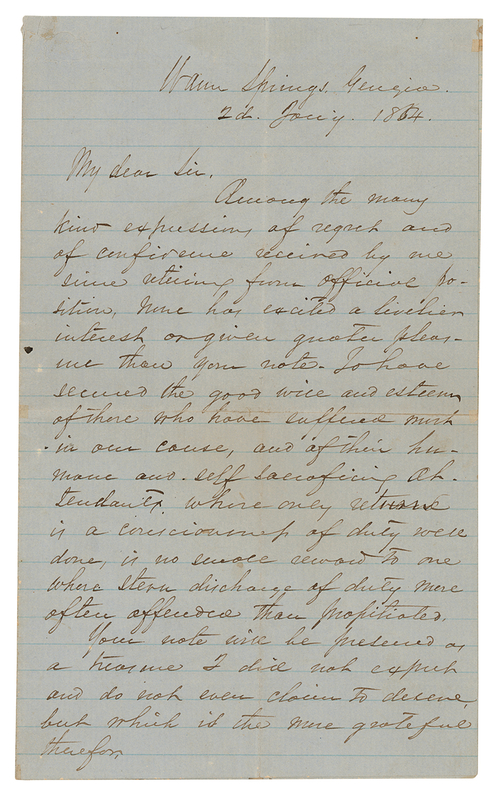 Warm Springs, Georgia.
2d. Jan'y. 1864.
My dear Sir,
Among the many
kind expressions of regret and
of confidence received by me
since retiring from official po-
sition, none has excited a livelier
interest or given greater pleas-
ure than your note. To have
secured the good will and esteem
of those who have suffered most
in our cause, and of their hu-
mane and self sacrificing at-
tendants, whose only reward
is a consciousness of duty well
done, is no small reward to one
whose stern discharge of duty more
often offended than propitiated.
Your note will be preserved as
a treasure I did not expect
and do not even claim to deserve,
but which is the more grateful
therefor.